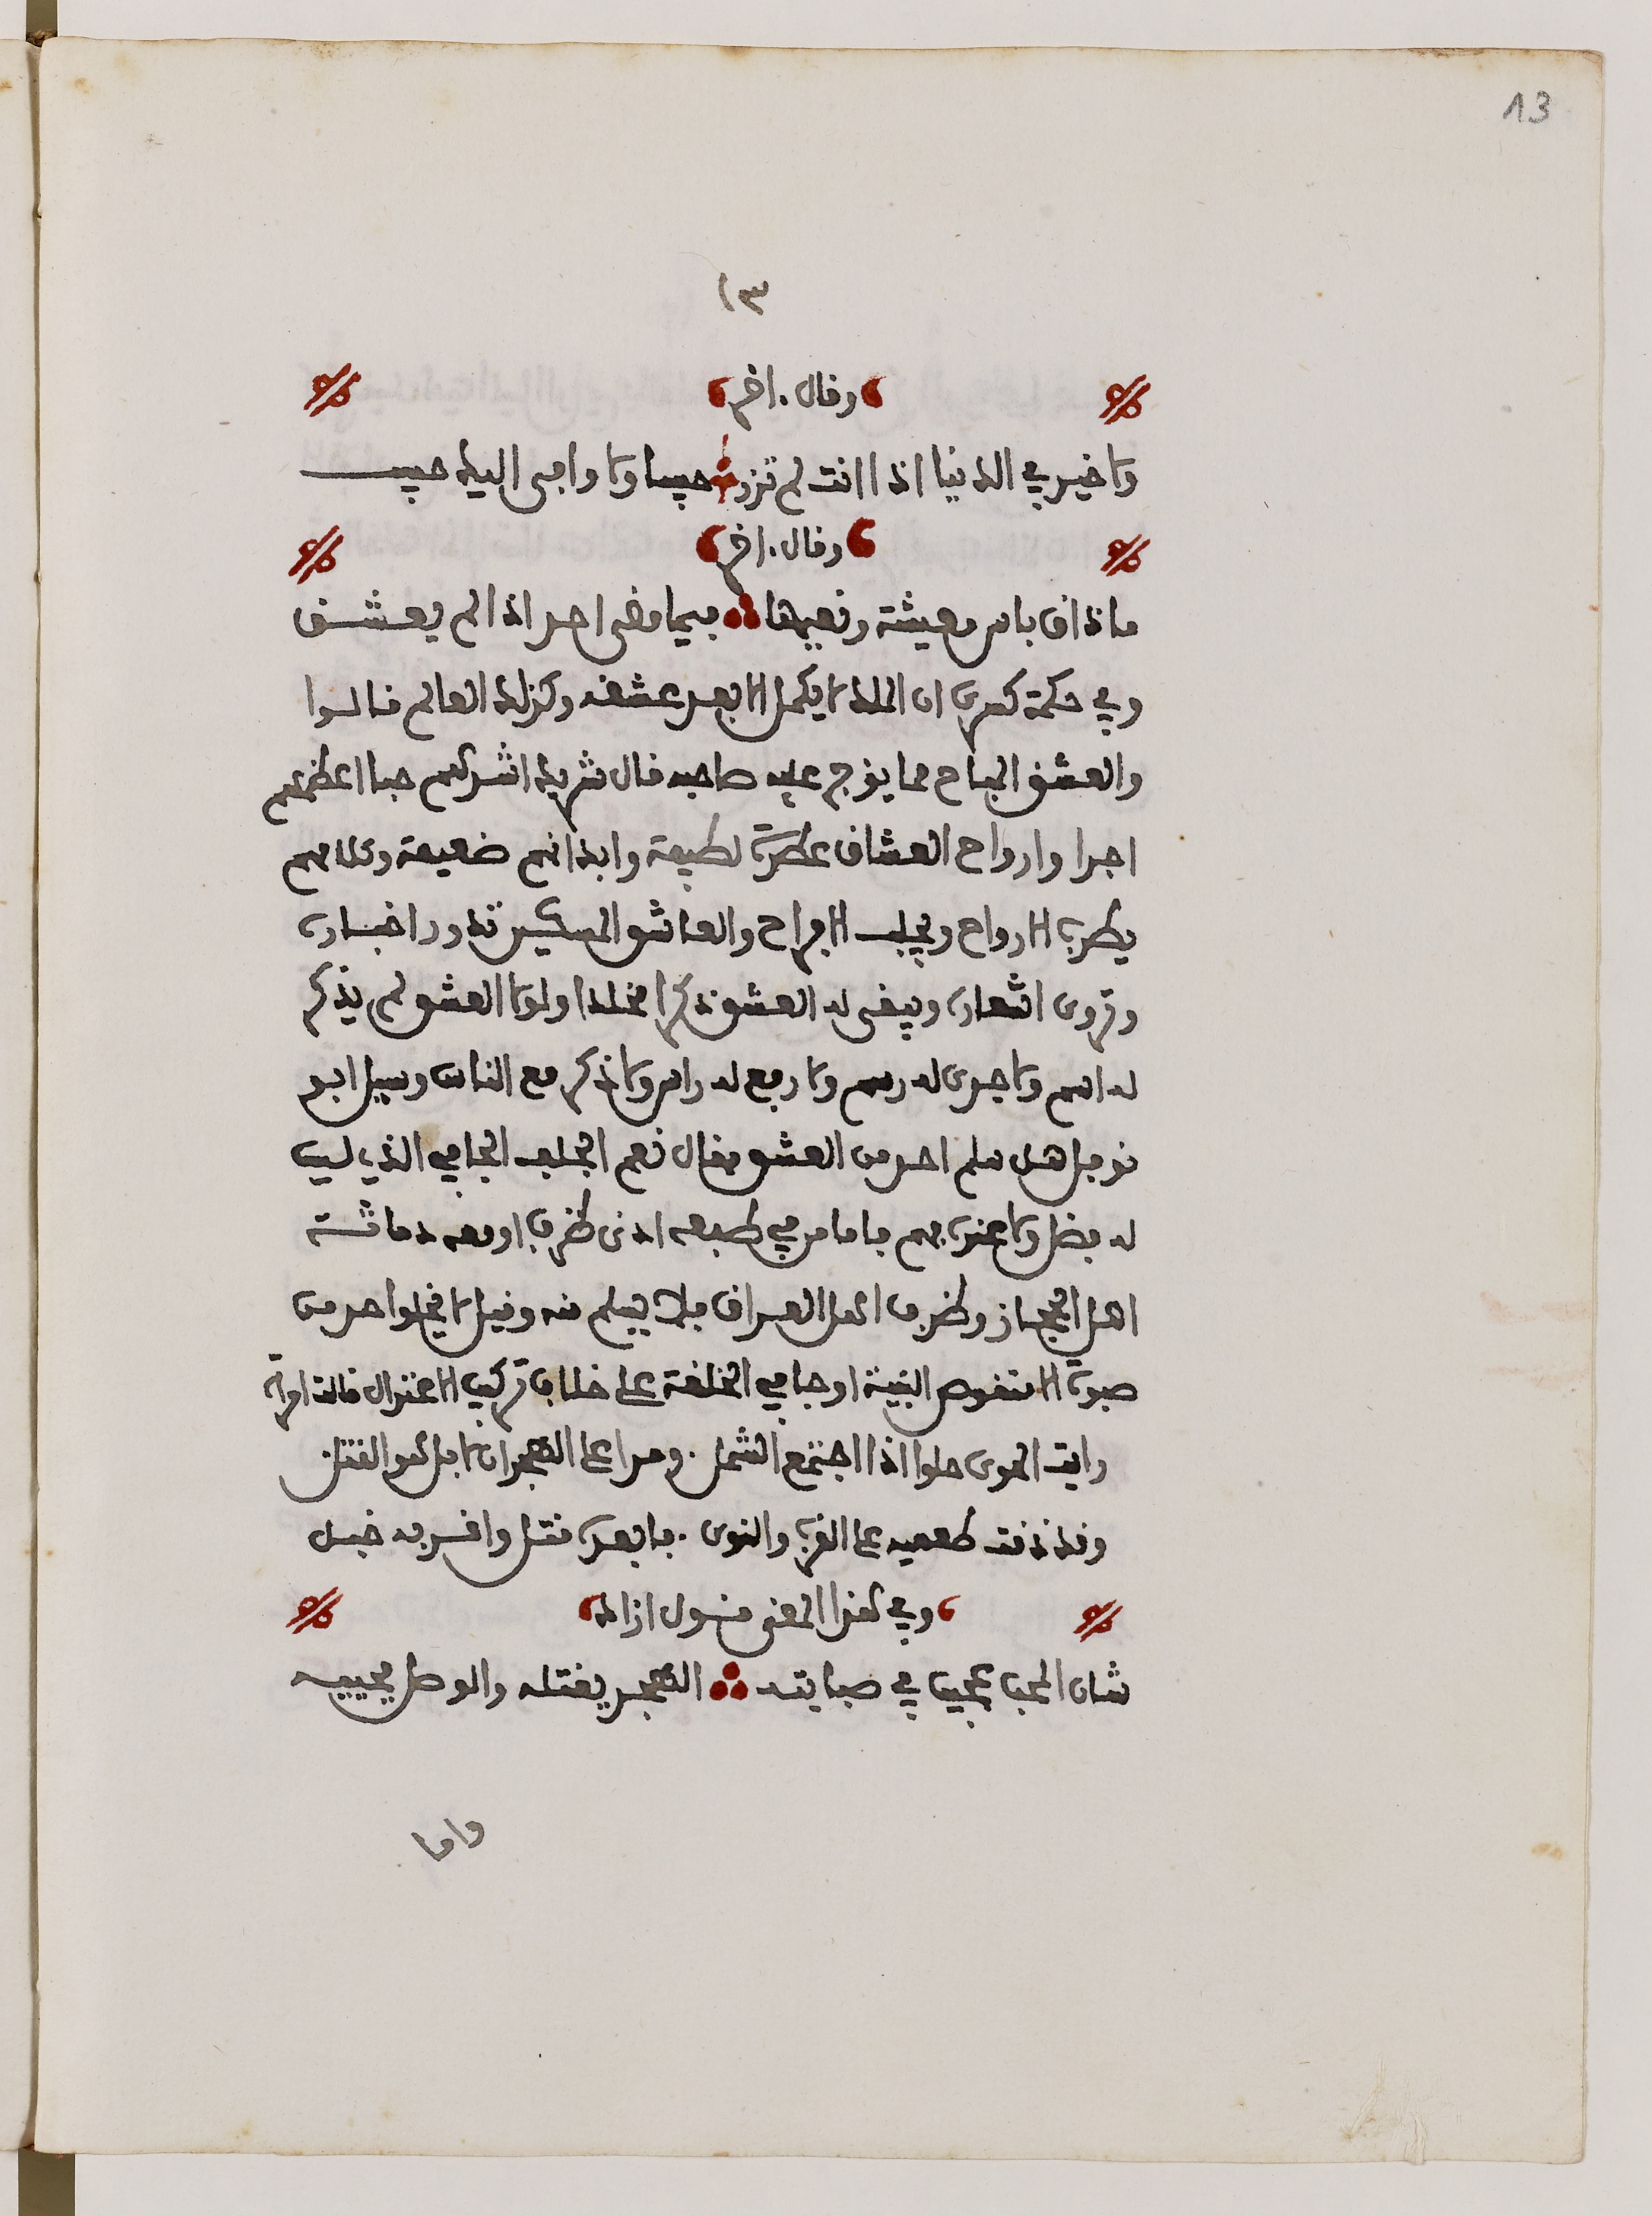 13
١٣
وقال اخر
ولا خير في الدنيا اذا انت لم تزر حبيبا ولا وافى اليك حبيب
وقال اخر
ما ذاق باس معيشة ونعيمها فيما مضى احد اذا لم يعشق
وفي حكمة كسرى ان الملك لا يكمل الا بعد عشقه وكذلك العالم قالوا
والعشق المباح مما يؤجر عليه صاحبه قال شريك اشدكم حبا اعظمكم
اجرا وارواح العشاق عطرة لطيفة وابدانهم ضعيفة وكلامهم
يطرب الارواح ويجلب الافراح والعاشق المسكين تدور اخباره
وتروى اشعاره ويبقى له العشق ذكرا مخلدا ولولا العشق لم يذكر
له اسم ولا جرى له رسم ولا رفع له راس ولا ذكر مع الناس وسيل ابو
نوفل هل سلم احد من العشق فقال نعم الجلف الجافي الذي ليس
له فضل ولا عنده فهم فاما من في طبعه ادنى ظرف او معه دماثة
اهل الحجاز وظرف اهل العراق فلا يسلم منه وقيل لا يخلو احد من
صبوة الا منقوص البنية او جافي الخلقة على خلاف تركيب الاعتدال قالت امراة
رايت الهوى حلوا اذا اجتمع الشمل ومرا على الهجران لا بل هو القتل
وقد ذقت طعميه على القرب والنوى فابعده قتل واقربه خبل
وفي هذا المعنى قول ازاد
شان المحب عجيب في صبابته الهجر يقتله والوصل يحييه
واما